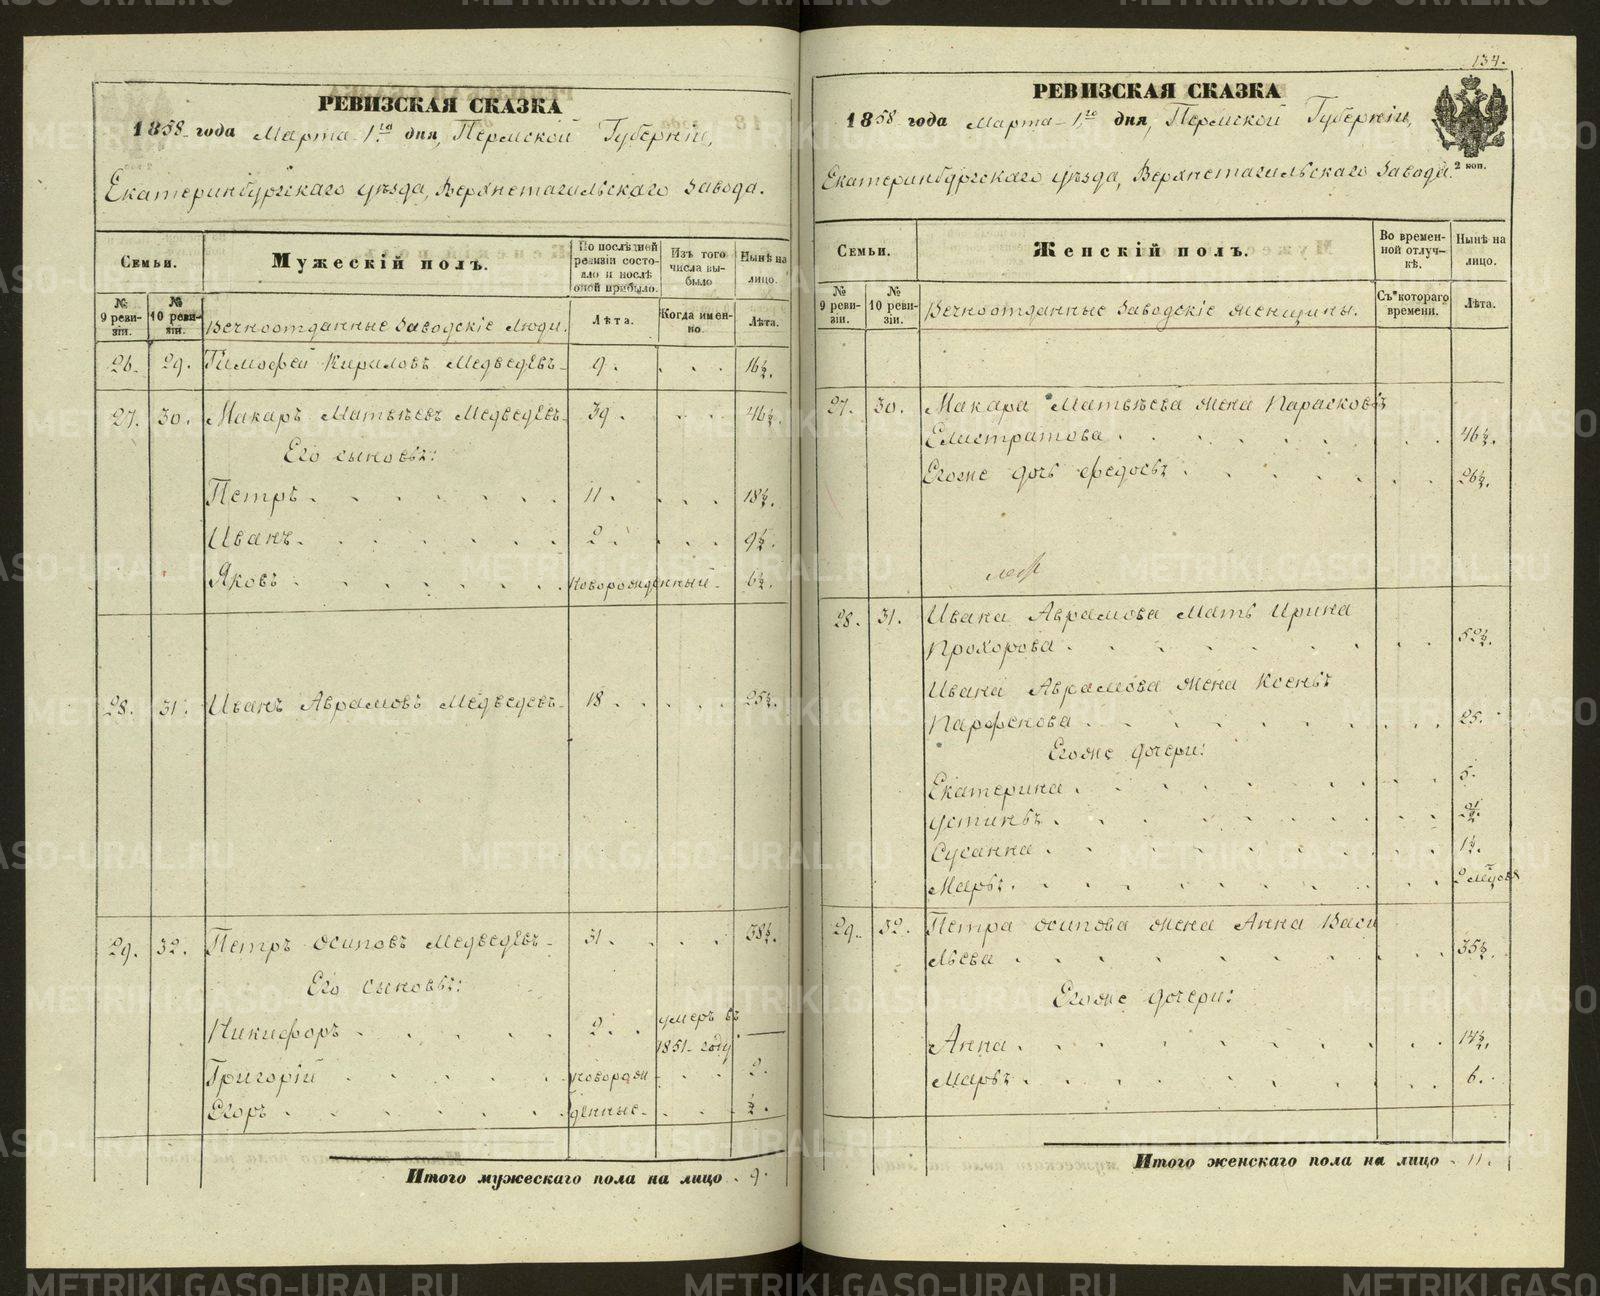 РЕВИЗСКАЯ СКАЗКА
1858 года Марта 1го дня, Пермской Губерніи,
Екатеринбургскаго уѣзда, Верхнетагильскаго завода.
Семьи.
Мужескій полъ.
По послѣдней ревизіи состояло и послѣ оной прибыло.
Изъ того числа выбыло
Нынѣ на лицо.
№ 9 ревизіи.
№ 10 ревизіи.
Вечноотданные Заводскіе Люди.
Лѣта.
Когда именно.
Лѣта.
26. 29. Тимофей Кириловъ Медведевъ 9. 16½.
27. 30. Макаръ Матвѣевъ Медведевъ 39. 46½.
Его сыновья:
Петръ 11. 18½.
Иванъ 2. 9½.
Яковъ новорожденный 6½.
28. 31. Иванъ Аврамовъ Медведевъ 18. 25½.
29. 32. Петръ Осиповъ Медведевъ 31. 38½.
Его сыновья:
Никифоръ 2. умеръ въ 1851 году —
Григорій новорож 2.
Егоръ денные ½.
Итого мужескаго пола на лицо 9.
134.
РЕВИЗСКАЯ СКАЗКА
1858 года Марта 1го дня, Пермской Губерніи,
Екатеринбургскаго уѣзда, Верхнетагильскаго завода.
2 коп.
Семьи.
Женскій полъ.
Во временной отлучкѣ.
Нынѣ на лицо.
№ 9 ревизіи.
№ 10 ревизіи.
Вечноотданные Заводскіе женщины.
Съ котораго времени.
Лѣта.
27. 30. Макара Матвѣева жена Парасковья
Елистратова 46½.
Егоже дочь Федосья 26½.
28. 31. Ивана Аврамова Мать Ирина
Прохорова 52½.
Ивана Аврамова жена Ксенья
Парфенова 25.
Егоже дочери:
Екатерина 5.
Устинья 2½.
Сусанна 1½.
Марья 2 мѣсяца
29. 32. Петра Осипова жена Анна Васи
льева 35½.
Егоже дочери:
Анна 14½.
Марья 6.
Итого женскаго пола на лицо 11.
METRIKI.GASO-URAL.RU